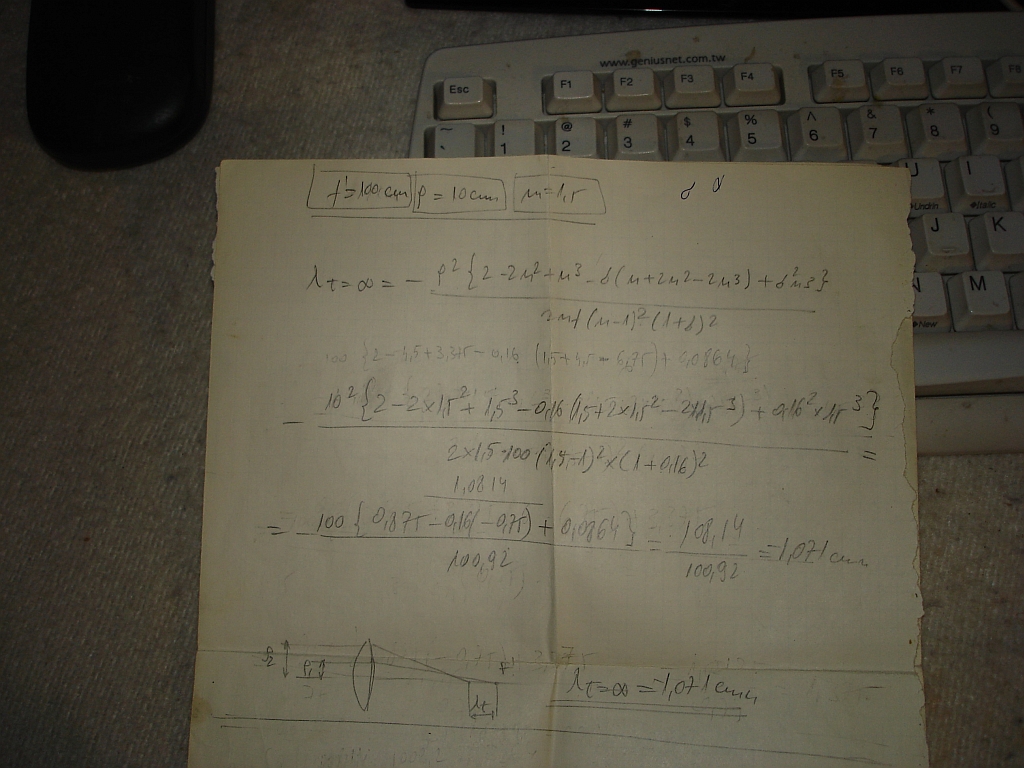 www.geniusnet.com.tw
Esc F1 F2 F3 F4 F5 F6 F7 F8
~ ` ! 1 @ 2 # 3 $ 4 % 5 ^ 6 & 7 * 8 ( 9
U I
J K
N M
f'=100 cm ρ = 10 cm n=1,5
λt=∞ = - ρ² {2-2n²+n³-σ(n+2n²-2n³)+σ²n³}
2nf(n-1)²(1+σ)²
100 {2-4,5+3,375-0,16 (1,5+4,5-6,75)+0,0864}
- 10² {2-2×1,5²+1,5³-0,16(1,5+2×1,5²-2×1,5³)+0,16²×1,5³}
2×1,5·100·(1,5-1)²×(1+0,16)² =
1,0814
= - 100 {0,875-0,16(-0,75)+0,0864} = 108,14 = -1,071 cm
100,92 100,92
λt=∞ = -1,071 cm
λt